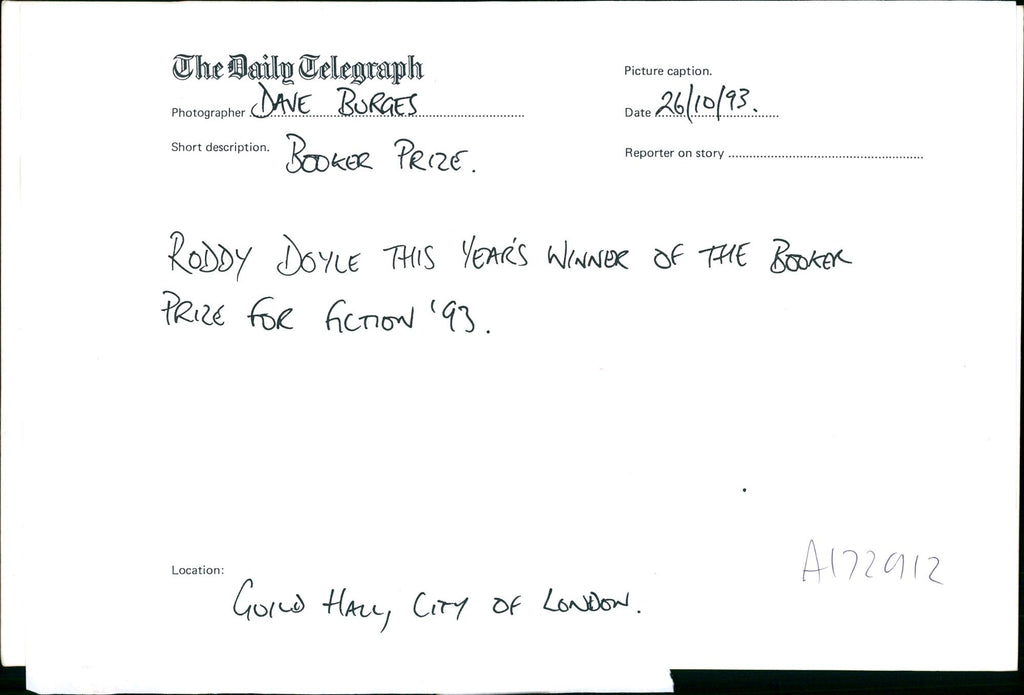 The Daily Telegraph
Picture caption.
Photographer DAVE BURGES
Date 26/10/93.
Short description. BOOKER PRIZE.
Reporter on story
RODDY DOYLE THIS YEAR'S WINNER OF THE BOOKER
PRIZE FOR FICTION '93.
Location:
GUILD HALL, CITY OF LONDON.
A1772912